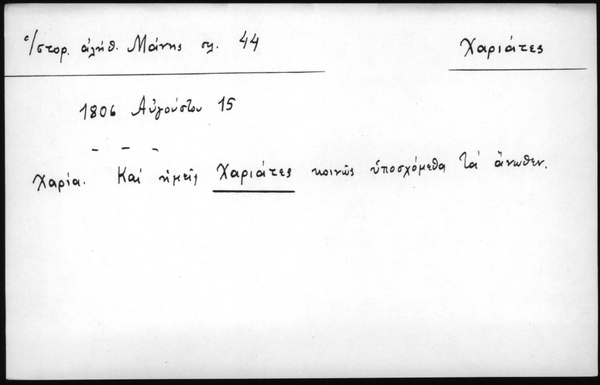 Ἱστορ. ἀλήθ. Μάνης σ. 44
Χαριάτες
1806 Αὐγούστου 15
– – –
Χαρία. Καὶ ἡμεῖς Χαριάτες κοινῶς ὑποσχόμεθα τὰ ἄνωθεν.